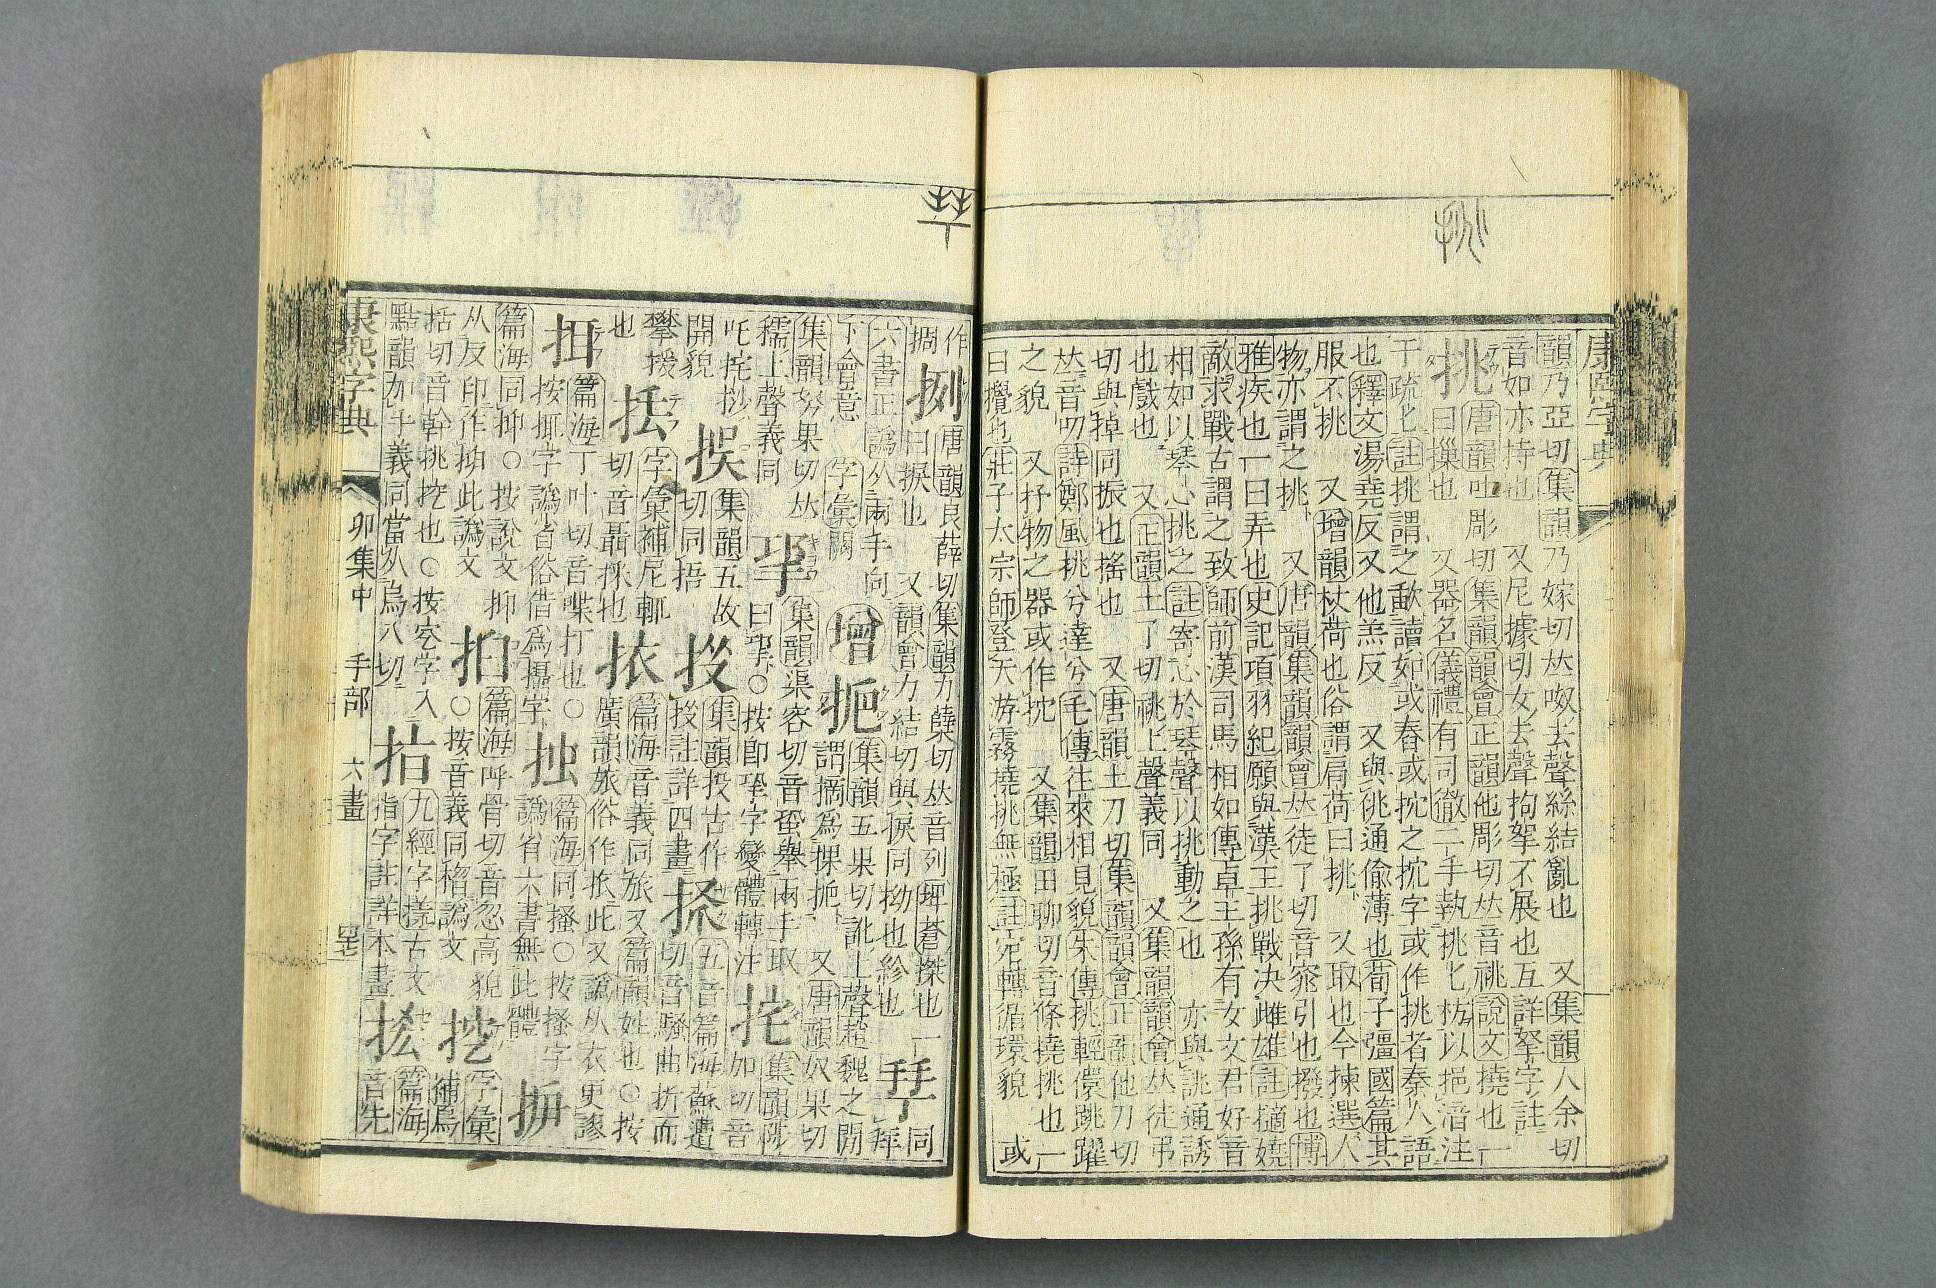 韻乃亞切集韻乃嫁切𠀤呶去聲絲結亂也 又集韻人余切
音如亦持也 又尼據切女去聲拘拏不展也互詳拏字註
挑 唐韻吐彫切集韻韻會正韻他彫切𠀤音祧說文撓也一
曰摷也 又器名儀禮有司徹二手執挑匕枋以挹湆注
于疏匕註挑謂之歃讀如或舂或抭之抭字或作挑者秦人語
也釋文湯堯反又他羔反 又與佻通偷薄也荀子彊國篇其
服不挑 又增韻杖荷也俗謂肩荷曰挑 又取也今揀選人
物亦謂之挑 又唐韻集韻韻會𠀤徒了切音窕引也撥也博
雅疾也一曰弄也史記項羽紀願與漢王挑戰决雌雄註擿嬈
敵求戰古謂之致師前漢司馬相如傳卓王孫有女文君好音
相如以琴心挑之註寄心於琴聲以挑動之也 亦與誂通誘
也戲也 又正韻土了切祧上聲義同 又集韻韻會𠀤徒弔
切與掉同振也搖也 又唐韻土刀切集韻韻會正韻他刀切
𠀤音叨詩鄭風挑兮達兮毛傳往來相見貌朱傳挑輕儇跳躍
之貌 又抒物之器或作抭 又集韻田聊切音條撓挑也一
曰攪也莊子太宗師登天游霧撓挑無極註宛轉循環貌 或
作
捌 唐韻良薛切集韻力櫱切𠀤音列埤蒼㭞也 一
曰捩也 又韻會力結切與捩同拗也紾也
六書正譌从兩手向
下會意 字彙闕
增
集韻五果切訛上聲趙魏之閒
謂摘爲捰扼 又唐韻奴果切
集韻努果切𠀤
穤上聲義同
集韻渠容切音蛩舉兩手取
曰㧬○按卽㧬字變體轉注
挓 集韻陟
加切音
吒挓挱
開貌
捑 集韻五故
切同捂
集韻投古作
投註詳四畫
五音篇海蘇遭
切音騷曲折而
攀援
也
字彙補尼輒
切音聶採也
挔 篇海音義同旅又篇韻姓也○按
廣韻旅俗作挔此又譌从衣更謬
挕 篇海丁叶切音喋打也○
按㧴字譌省俗借爲攝字
篇海同搔○按搔字
譌省六書無此體
篇海同抑○按說文抑
从反印作𢑏此譌文
篇海呼骨切音忽高貌
○按音義同㨡譌文
挖 字彙
補烏
括切音斡挑挖也○按穵字入
黠韻加手義同當从烏八切
九經字樣古文
指字註詳本畫
篇海
音先
康熙字典
卯集中 手部 六畫
康熙字典